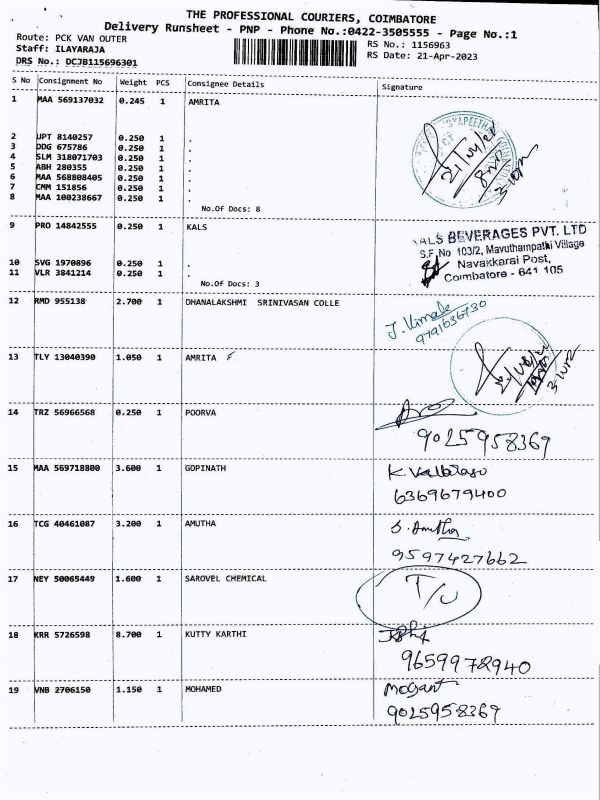 THE PROFESSIONAL COURIERS, COIMBATORE
Delivery Runsheet - PNP - Phone No.:0422-3505555 - Page No.:1
Route: PCK VAN OUTER
RS No.: 1156963
Staff: ILAYARAJA
RS Date: 21-Apr-2023
DRS No.: DCJB115696301
S No Consignment No Weight PCS Consignee Details Signature
1 MAA 569137032 0.245 1 AMRITA
2 UPT 8140257 0.250 1 .
3 DDG 675786 0.250 1 .
4 SLM 318071703 0.250 1 .
5 ABH 280355 0.250 1 .
6 MAA 568808405 0.250 1 .
7 CMM 151856 0.250 1 .
8 MAA 100238667 0.250 1 .
No.Of Docs: 8
9 PRO 14842555 0.250 1 KALS
ALS BEVERAGES PVT. LTD
S.F.No 103/2, Mavuthampathi Village
Navakkarai Post,
Coimbatore - 641 105
10 SVG 1970896 0.250 1 .
11 VLR 3841214 0.250 1 .
No.Of Docs: 3
12 RMD 955138 2.700 1 DHANALAKSHMI SRINIVASAN COLLE
J. Vimala
9791636730
13 TLY 13040390 1.050 1 AMRITA
14 TRZ 56966568 0.250 1 POORVA
9025958369
15 MAA 569718800 3.600 1 GOPINATH
6369679400
16 TCG 40461087 3.200 1 AMUTHA
S. Amutha
9597427662
17 NEY 50065449 1.600 1 SAROVEL CHEMICAL
T/U
18 KRR 5726598 8.700 1 KUTTY KARTHI
9659978940
19 VNB 2706150 1.150 1 MOHAMED
9025958369